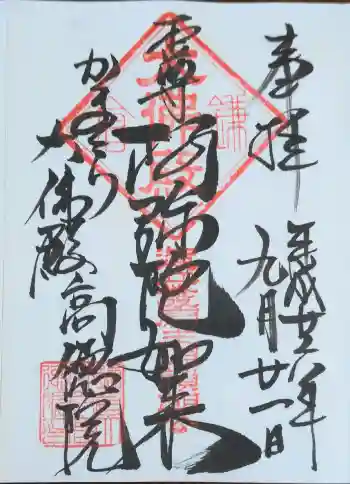 奉拝
平成廿八年
九月廿一日
本尊阿弥陀如来
かまくら
大佛殿高徳院